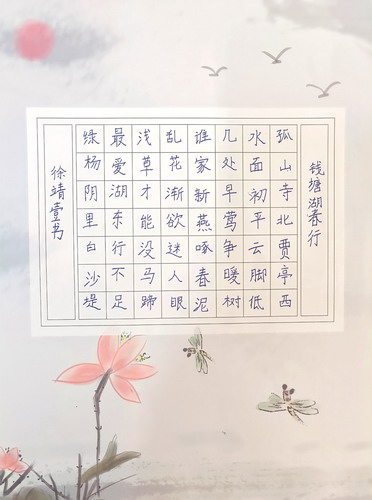 钱塘湖春行
孤山寺北贾亭西
水面初平云脚低
几处早莺争暖树
谁家新燕啄春泥
乱花渐欲迷人眼
浅草才能没马蹄
最愛湖东行不足
绿杨阴里白沙堤
徐靖壹书